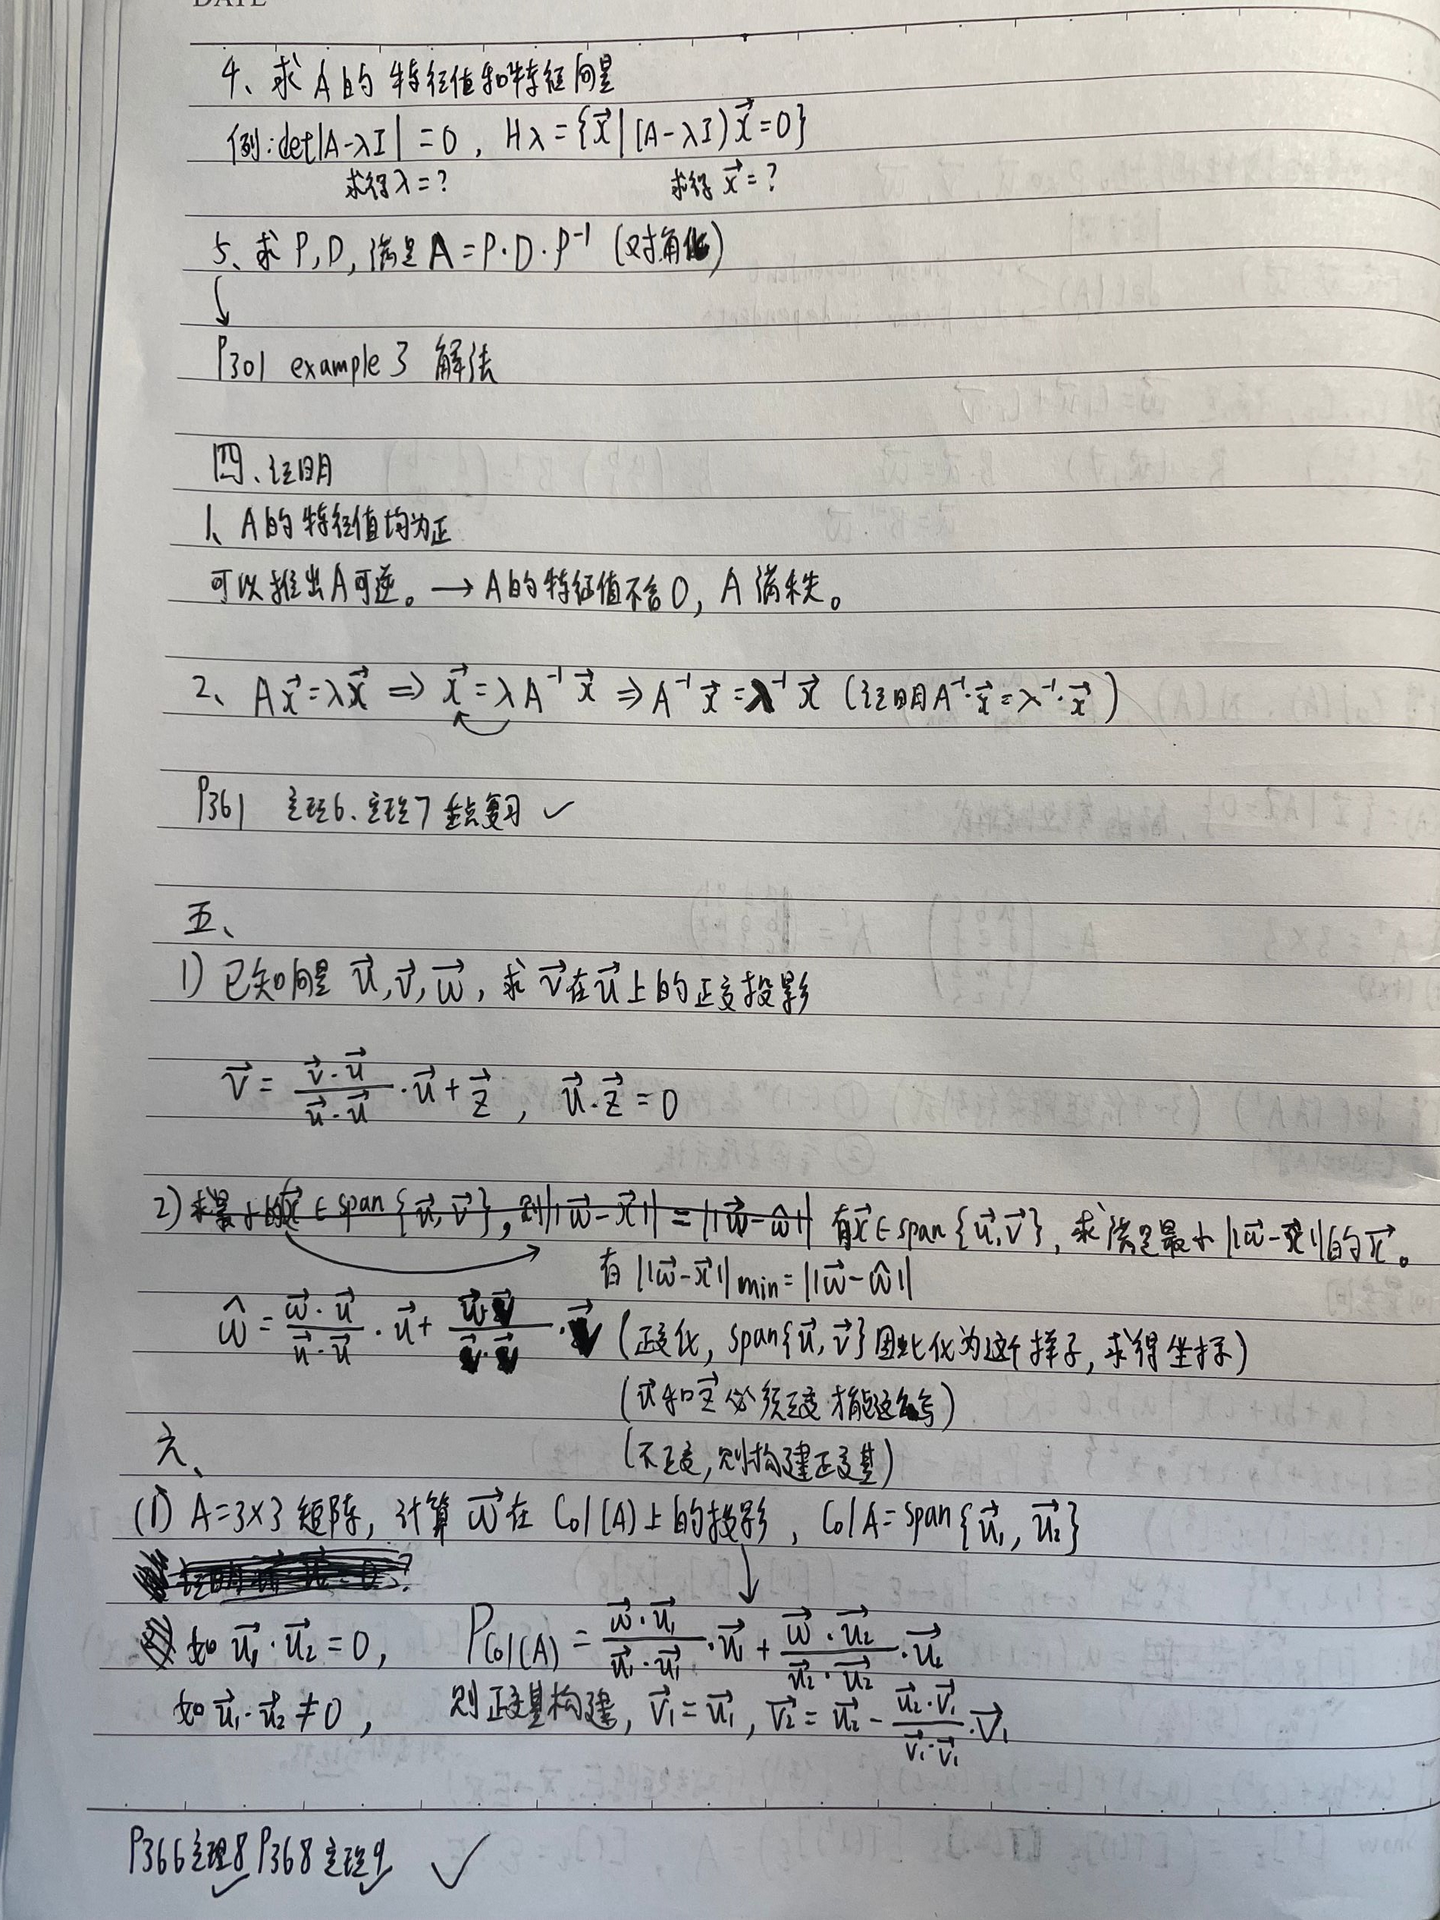 DATE
4、求A的特征值和特征向量
例:det|A-λI|=0, Hλ={x⃗|(A-λI)x⃗=0}
求得λ=? 求得x⃗=?
5、求P,D,满足A=P·D·P⁻¹(对角化)
↓
P301 example 3 解法
四、证明
1、A的特征值均为正
可以推出A可逆。→A的特征值不含0, A满秩。
2、Ax⃗=λx⃗ ⇒ x⃗=λA⁻¹x⃗ ⇒ A⁻¹x⃗=λ⁻¹x⃗ (证明A⁻¹·x⃗=λ⁻¹·x⃗)
P361 定理6、定理7 重点复习 ✓
五、
1) 已知向量 u⃗,v⃗,w⃗, 求v⃗在u⃗上的正交投影
v⃗ = (v⃗·u⃗)/(u⃗·u⃗)·u⃗+z⃗, u⃗·z⃗=0
2) 求最小的x⃗∈span{u⃗,v⃗},则||w⃗-x⃗||=||w⃗-ŵ|| 有x⃗∈span{u⃗,v⃗}, 求满足最小||w⃗-x⃗||的x⃗。
有||w⃗-x⃗||min=||w⃗-ŵ||
ŵ = (w⃗·u⃗)/(u⃗·u⃗)·u⃗+ (正交化, span{u⃗,v⃗}因此化为这个样子, 求得坐标)
(u⃗和z⃗必须正交才能这么写)
(不正交,则构建正交基)
六、
(1) A=3×3矩阵, 计算w⃗在Col(A)上的投影, ColA=span{u⃗₁, u⃗₂}
如u⃗₁·u⃗₂=0, PCol(A) = (w⃗·u⃗₁)/(u⃗₁·u⃗₁)·u⃗₁+(w⃗·u⃗₂)/(u⃗₂·u⃗₂)·u⃗₂
如u⃗₁·u⃗₂≠0, 则正交基构建, v⃗₁=u⃗₁, v⃗₂=u⃗₂-(u⃗₂·v⃗₁)/(v⃗₁·v⃗₁)·v⃗₁
P366定理8 P368定理9 ✓